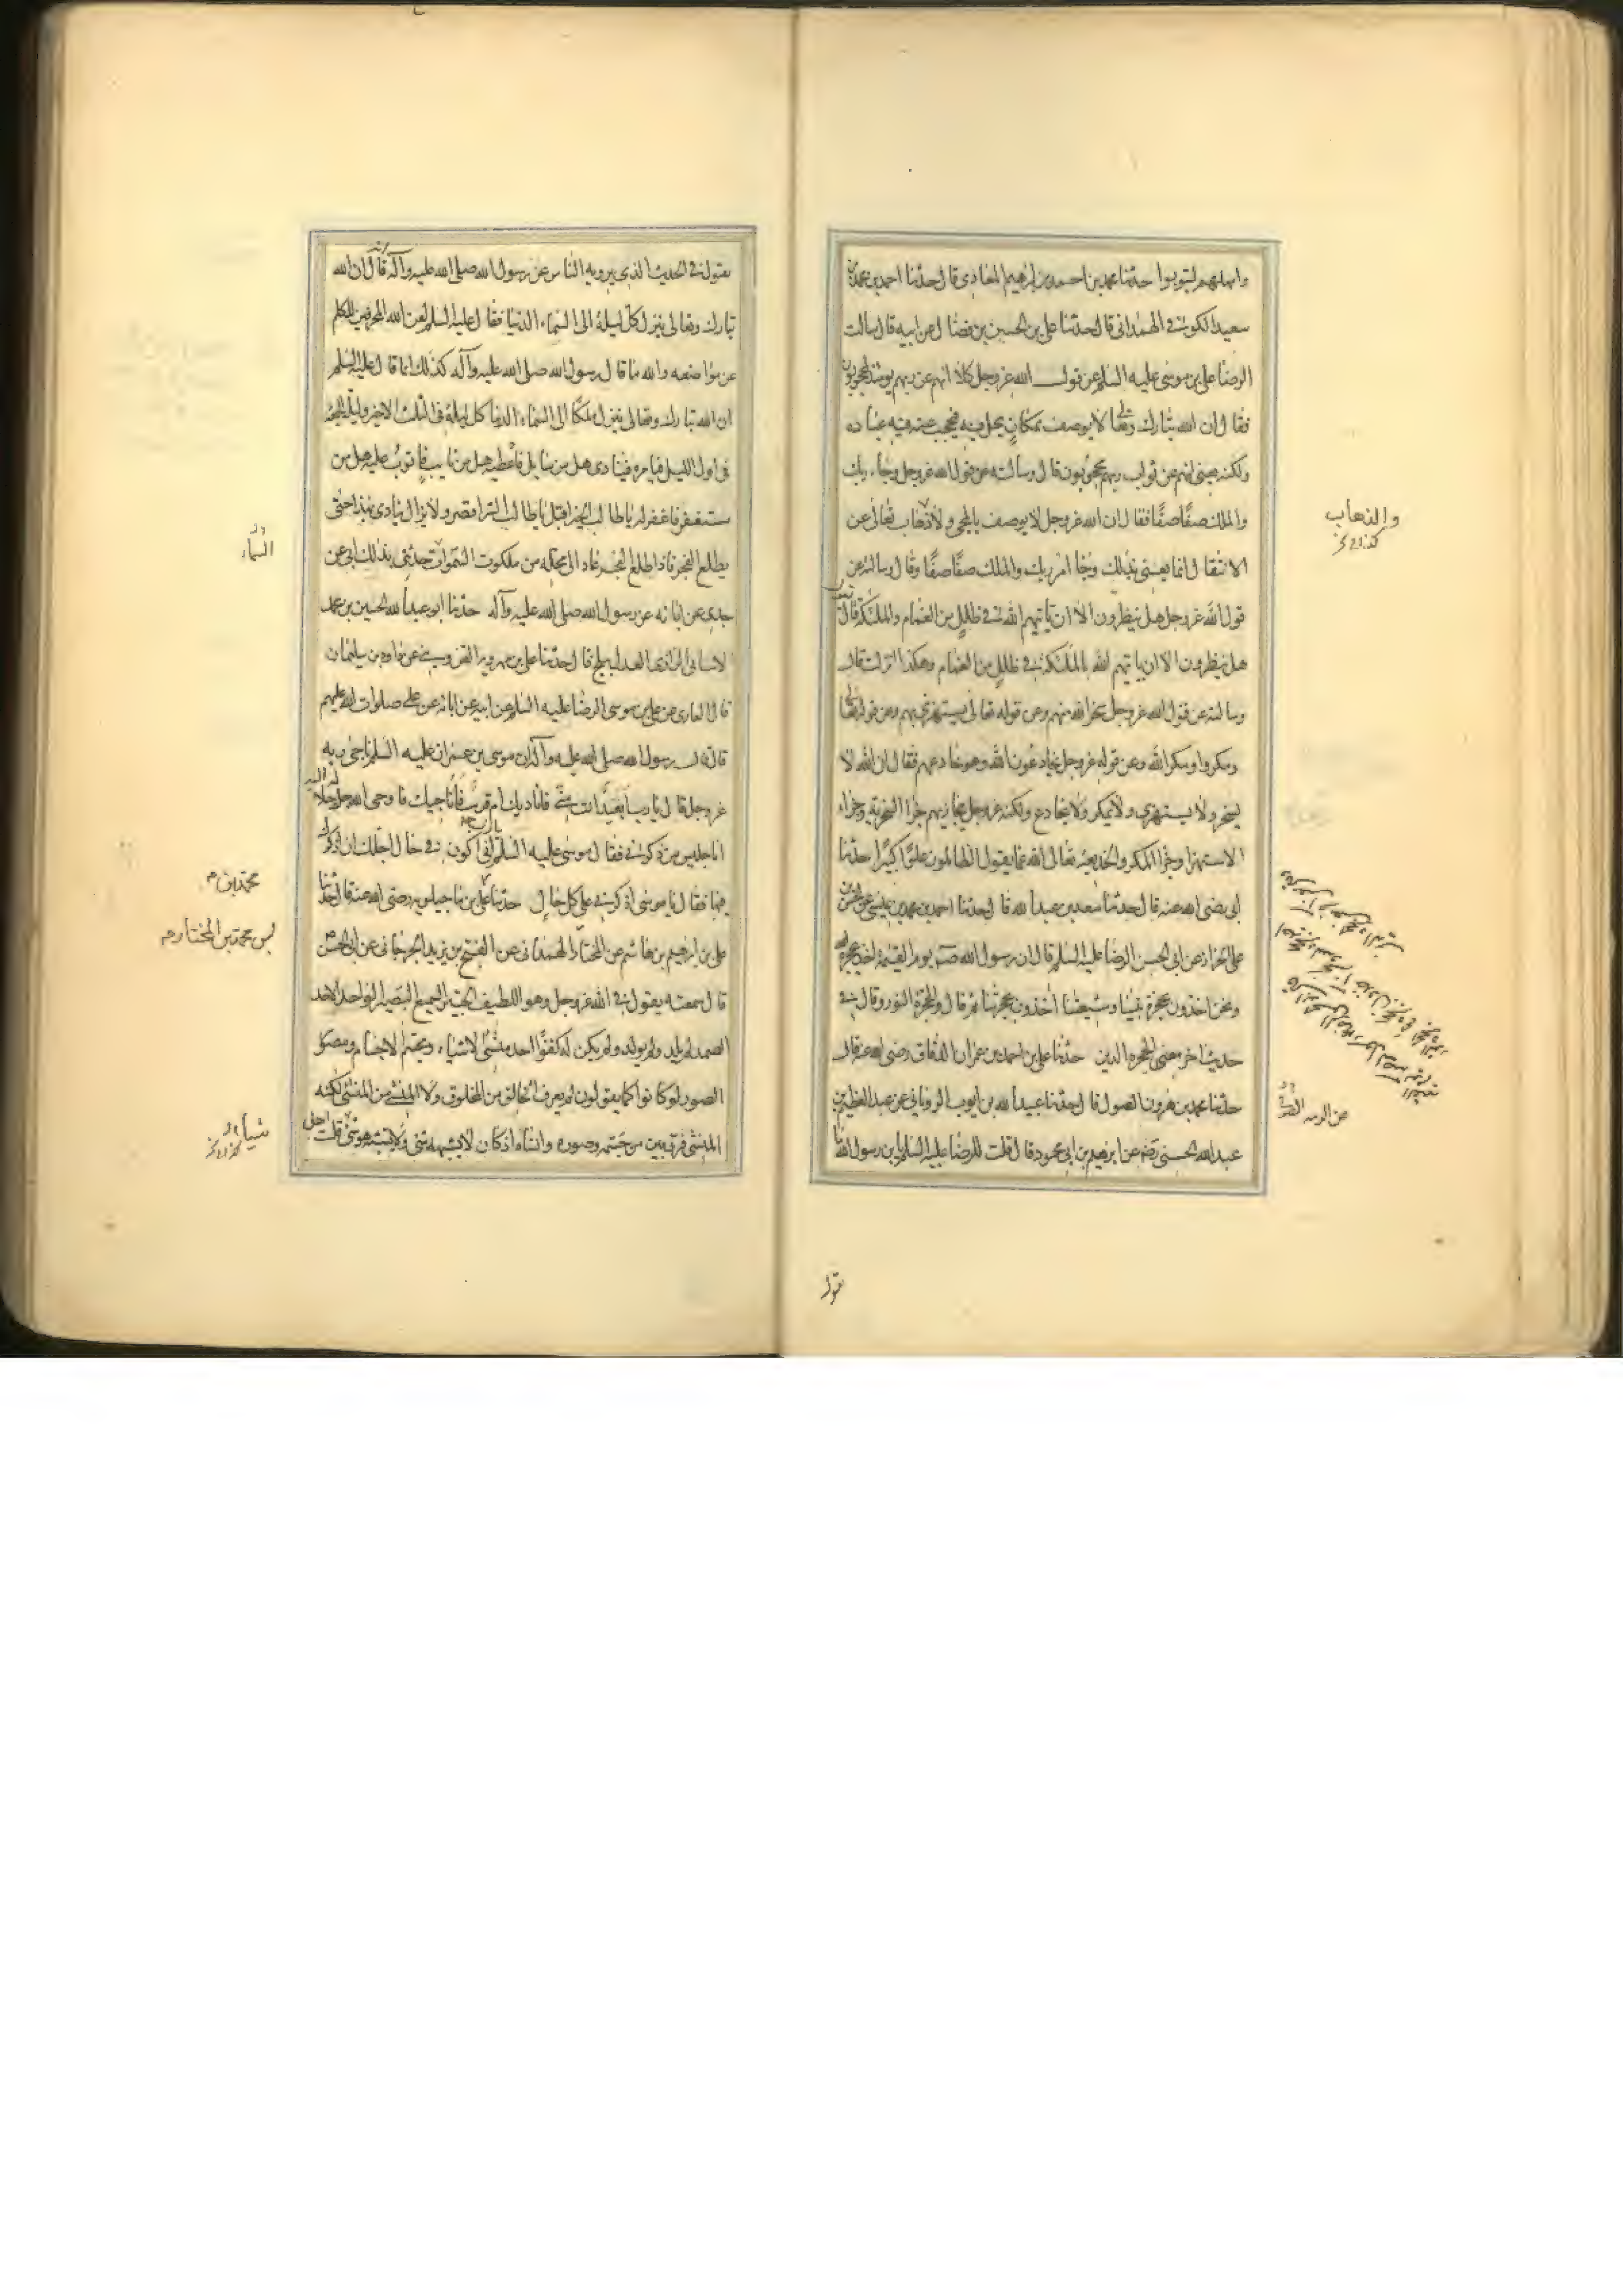 وامهلهم ليتوبوا حدثنا محمد بن احمد بن ابرهيم المعاذى قال حدثنا احمد بن محمد بن
سعيد الكوفى الهمدانى قال حدثنا على بن الحسين بن فضال عن ابيه قال سالت
الرضا على بن موسى عليه السلم عن قول الله عز وجل كلا انهم عن ربهم يومئذ لمحجوبون
فقال ان الله تبارك وتعالى لا يوصف بمكان يحل فيه فيحجب عنه فيه عباده
ولكنه يعنى انهم عن ثواب ربهم محجوبون قال وسالته عن قول الله عز وجل وجاء ربك
والملك صفا صفا فقال ان الله عز وجل لا يوصف بالمجى ولا ذهاب تعالى عن
الانتقال انما يعنى بذلك وجا امر ربك والملك صفا صفا وقال وسالته عن
قول الله عز وجل هل ينظرون الا ان ياتيهم الله فى ظلل من الغمام والملئكة قال
هل ينظرون الا ان ياتيهم الله بالملئكة فى ظلل من الغمام وهكذا انزلت قال
وسالته عن قول الله عز وجل سخر الله منهم وعن قوله تعالى يستهزئ بهم وعن قوله تعالى
ومكروا ومكر الله وعن قوله عز وجل يخادعون الله وهو خادعهم فقال ان الله لا
يسخر ولا يستهزئ ولا يمكر ولا يخادع ولكنه عز وجل يجازيهم جزا السخرية وجزاء
الاستهزا وجزا المكر والخديعة تعالى الله عما يقول الظالمون علوا كبيرا حدثنا
ابى رضى الله عنه قال حدثنا سعد بن عبد الله قال حدثنا احمد بن محمد بن عيسى عن الحسن بن
على الخزاز عن ابى الحسن الرضا عليه السلم قال ان رسول الله صم يوم القيمة اخذ بحجزة الله
ونحن اخذون بحجزة نبينا وشيعتنا آخذون بحجزتنا ثم قال والحجزة النور وقال فى
حديث اخر معنى الحجزه الدين حدثنا على بن احمد بن عمران الدقاق رضى الله عنه قال
حدثنا محمد بن هرون الصوفى قال حدثنا عبيد الله بن ايوب الرويانى عن عبد العظيم بن
عبد الله الحسنى رضه عن ابرهيم بن ابى محمود قال قلت للرضا عليه السلم يا بن رسول الله ما
تقول
والذهاب
يقول فى الحديث الذى يرويه الناس عن رسول الله صلى الله عليه وآله انه قال ان الله
تبارك وتعالى ينزل كل ليلة الى السماء الدنيا فقال عليه السلم لعن الله المحرفين للكلم
عن مواضعه والله ما قال رسول الله صلى الله عليه وآله كذلك انما قال عليه السلم
ان الله تبارك وتعالى ينزل ملكا الى السماء الدنيا كل ليلة فى الثلث الاخير وليلة الجمعة
فى اول الليل فيامره فينادى هل من سايل فاعطيه هل من تايب فاتوب عليه هل من
مستغفر فاغفر له يا طالب الخير اقبل يا طالب الشر اقصر ولا يزال ينادى بهذا حتى
يطلع الفجر فاذا طلع الفجر عاد الى محله من ملكوت السموات حدثنى بذلك ابى عن
جدى عن ابائه عن رسول الله صلى الله عليه وآله حدثنا ابو عبد الله الحسين بن محمد
الاشنانى الرازى العدل ببلخ قال حدثنا على بن مهرويه القزوينى عن داود بن سليمان
قال الغازى عن على بن موسى الرضا عليه السلم عن ابيه عن ابائه عن على صلوات الله عليهم
قال قال رسول الله صلى الله عليه وآله ان موسى بن عمران عليه السلم ناجى ربه
عز وجل قال يا رب ابعيد انت منى فاناديك ام قريب فاناجيك فاوحى الله جل جلاله اليه
انا جليس من ذكرنى فقال موسى عليه السلم يا رب انى اكون فى حال اجلك ان اذكرك
فيها فقال يا موسى اذكرنى على كل حال حدثنا على بن ماجيلويه رضى الله عنه قال حدثنا
على بن ابرهيم بن هاشم عن المختار الهمدانى عن الفتح بن يزيد الجرجانى عن ابى الحسن
قال سمعته يقول فى الله عز وجل وهو اللطيف الخبير السميع البصير الواحد الاحد
الصمد لم يلد ولم يولد ولم يكن له كفوا احد منشئ الاشياء ومجسم الاجسام ومصور
الصور لو كانوا كما يقولون لم يعرف الخالق من المخلوق ولا المنشئ من المنشئ لكنه
المنشئ فرق بين من جسمه وصوره وانشاه اذ كان لا يشبهه شئ ولا يشبه هو شئ قلت اجل
السماء
محمد بن م
بن محمد بن المختار م
شيأ